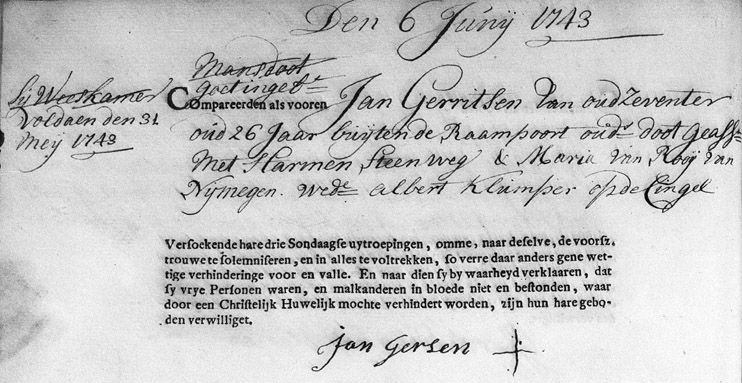 Den 6 Junÿ 1743
Mansdoot
goetingele
Sÿ Weeskamer
voldaen den 31
Meÿ 1743
Compareerden als vooren Jan Gerritsen van oudZeventer
oud 26 Jaar buÿten de Raampoort oudrs doot Geasstr
Met Harmen Steenweg & Maria van Rooÿ van
Nÿmegen. wede albert Klumper op de Cingel
Versoekende hare drie Sondaagse uytroepingen, omme, naar deselve, de voorsz.
trouwe te solemniseren, en in alles te voltrekken, so verre daar anders gene wet-
tige verhinderinge voor en valle. En naar dien sy by waarheyd verklaaren, dat
sy vrye Personen waren, en malkanderen in bloede niet en bestonden, waar
door een Christelijk Huwelijk mochte verhindert worden, zijn hun hare gebo-
den verwilliget.
Jan Gersen